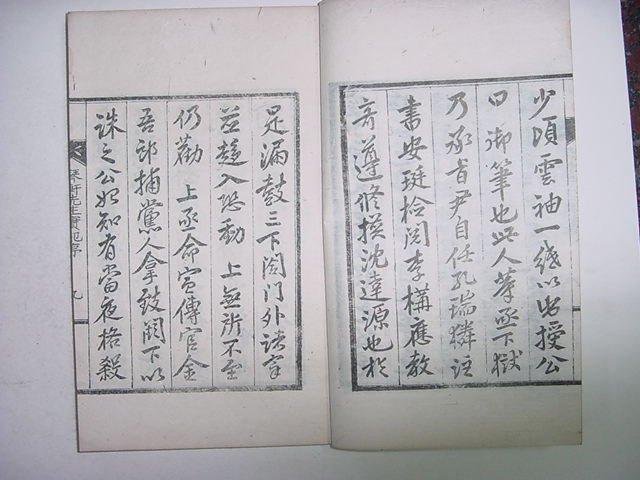 少頃雲袖一紙以出授公
曰御筆也此人等丞下獄
乃承旨尹自任孔瑞獜注
書安珽檢閱李構應教
奇遵修撰沈達源也於
是漏鼓三下閤門外諸宰
並趍入恐動上無所不至
仍勸上丞命宣傳官金
吾郎捕黨人拿致闕下以
誅之公始知有當夜格殺
先生實記序
九